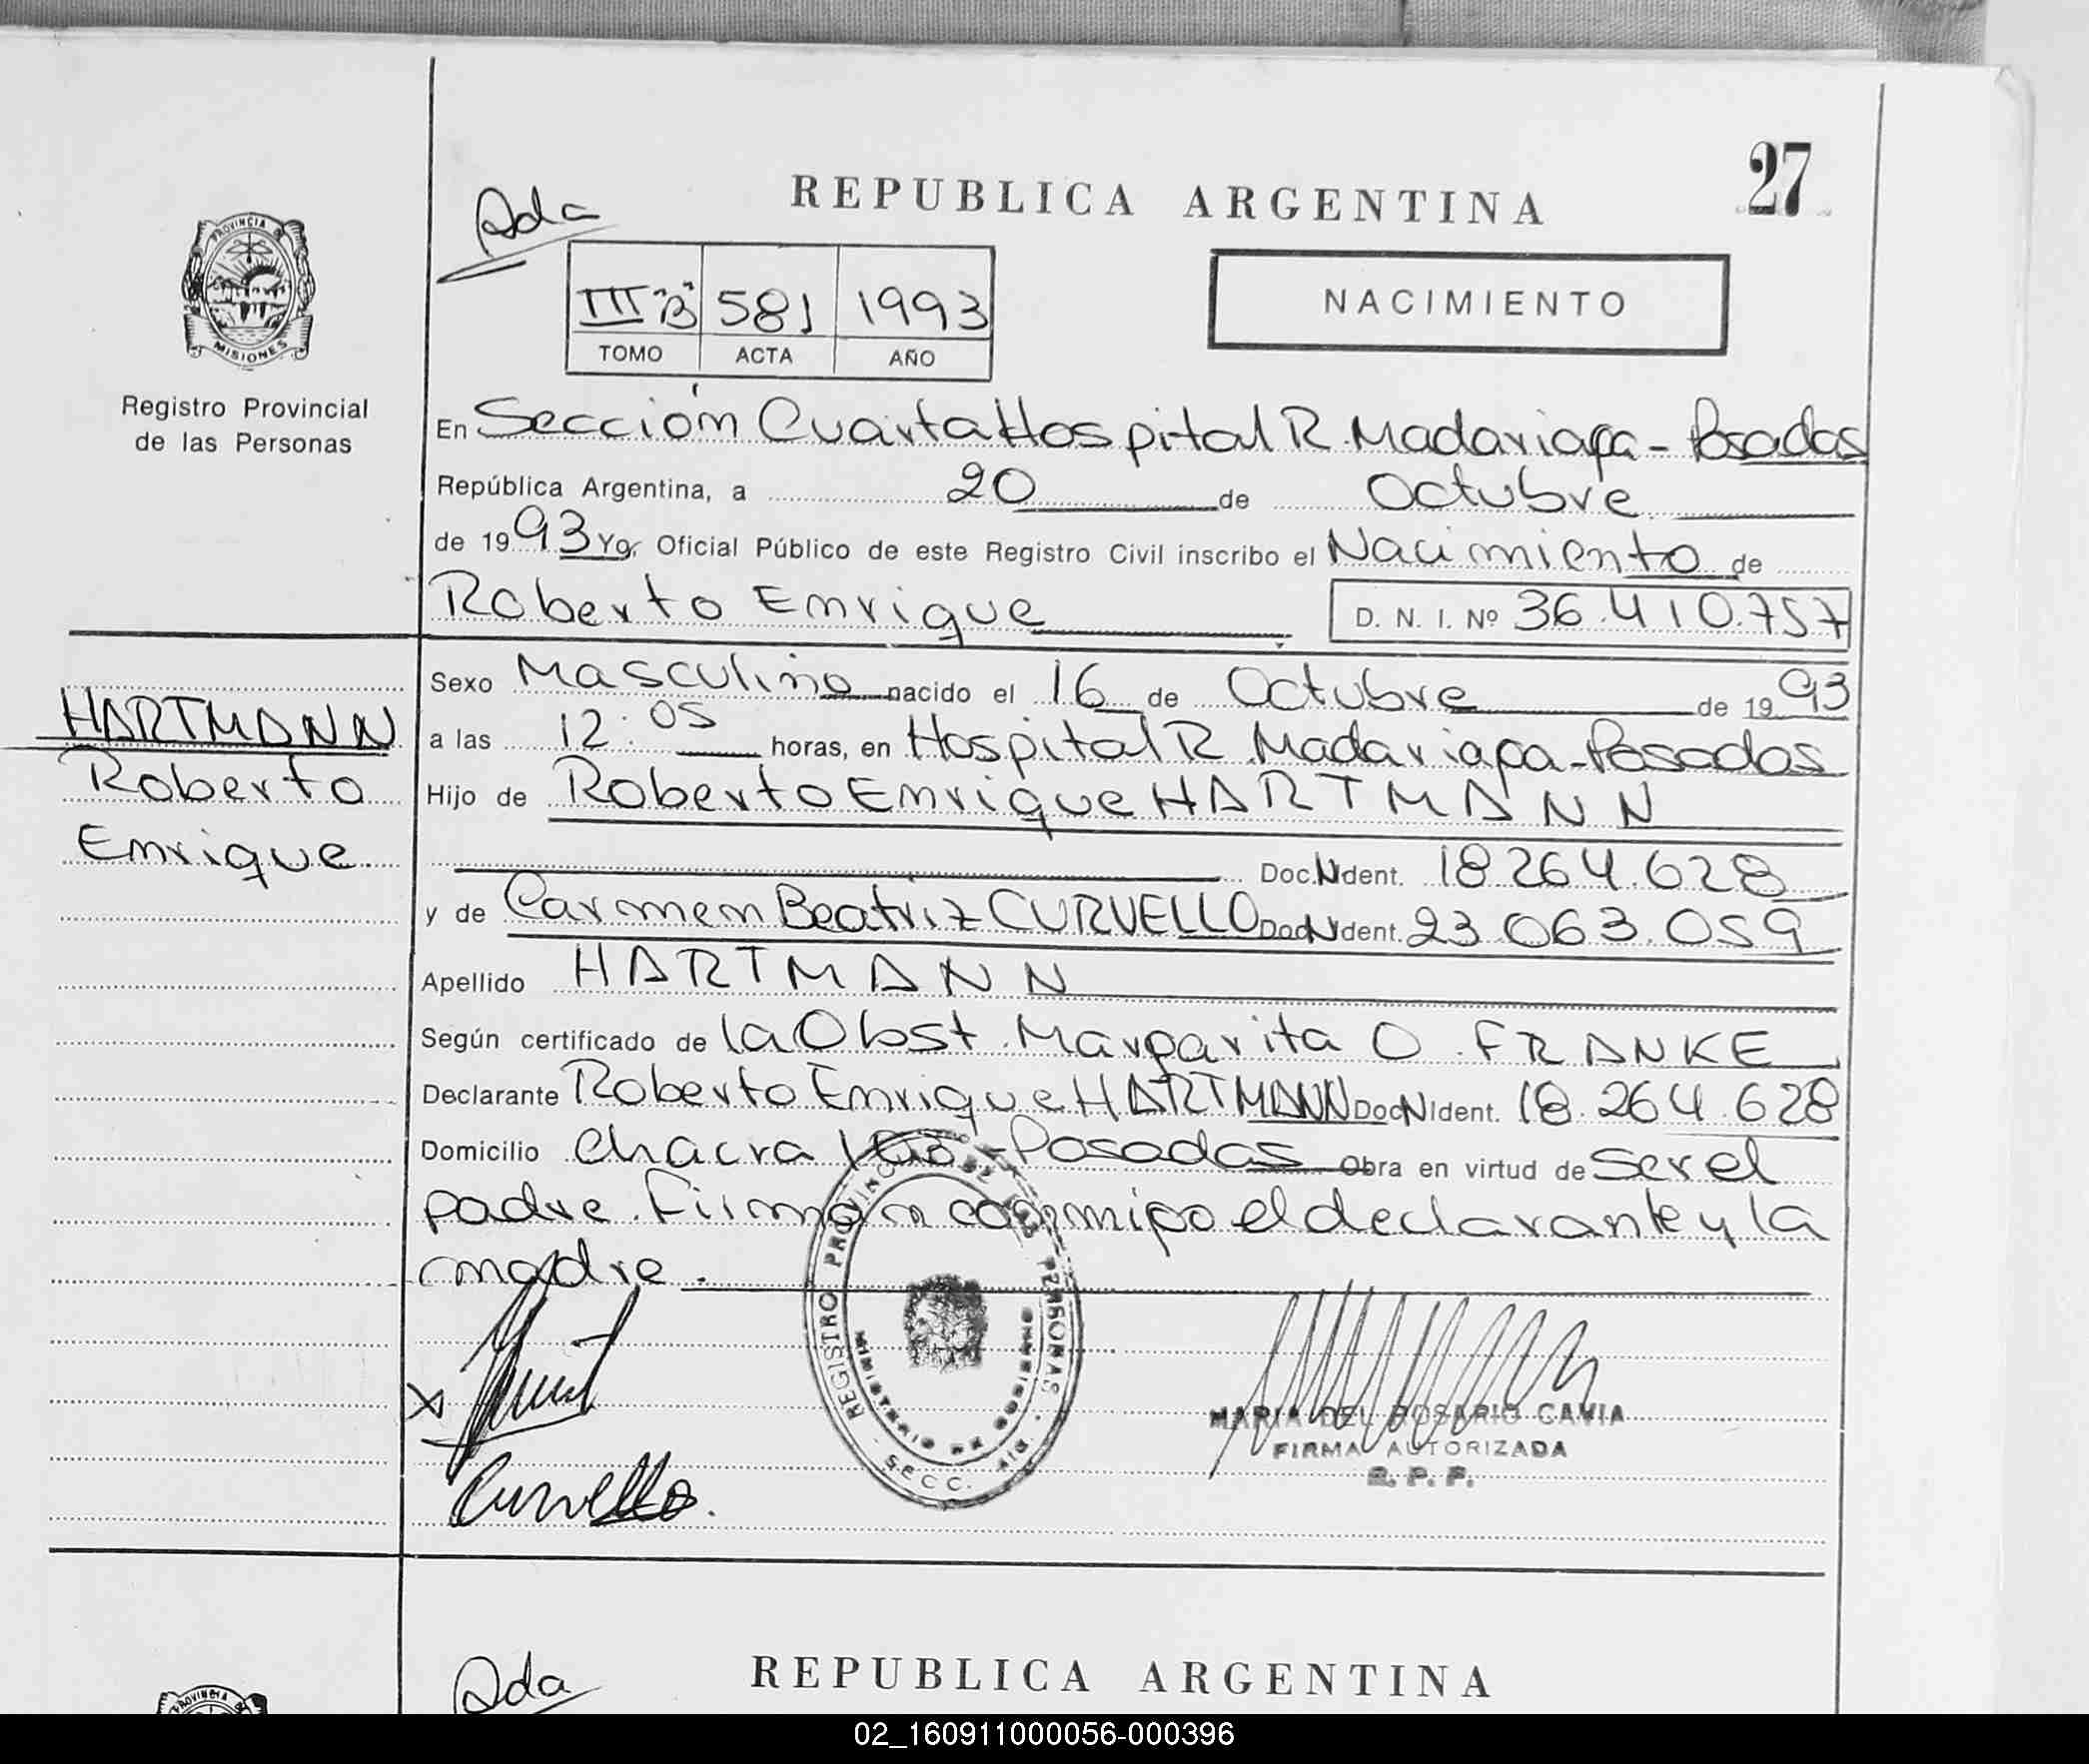 REPUBLICA ARGENTINA
27
Ada
PROVINCIA DE
MISIONES
III "B" 581 1993
TOMO ACTA AÑO
NACIMIENTO
Registro Provincial
de las Personas
En Sección Cuarta Hospital R. Madariaga - Posadas
República Argentina, a 20 de Octubre
de 1993 Yo, Oficial Público de este Registro Civil inscribo el Nacimiento de
Roberto Enrique D. N. I. Nº 36.410.757
Sexo Masculino nacido el 16 de Octubre de 1993
a las 12:05 horas, en Hospital R. Madariaga - Posadas
Hijo de Roberto Enrique HARTMANN
Doc. N Ident. 18.264.628
y de Carmen Beatriz CURVELLO Doc N Ident. 23.063.059
Apellido HARTMANN
Según certificado de la Obst. Margarita O. FRANKE
Declarante Roberto Enrique HARTMANN Doc N Ident. 18.264.628
Domicilio Chacra - Posadas Obra en virtud de ser el
padre. Firman conmigo el declarante y la
madre.
HARTMANN
Roberto
Enrique
REGISTRO PROVINCIAL DE LAS PERSONAS
MINISTERIO DE GOBIERNO
SECC.
MARIA DEL ROSARIO CAVIA
FIRMA AUTORIZADA
R. P. P.
Curvello.
Ada
REPUBLICA ARGENTINA
PROVINCIA DE
02_160911000056-000396